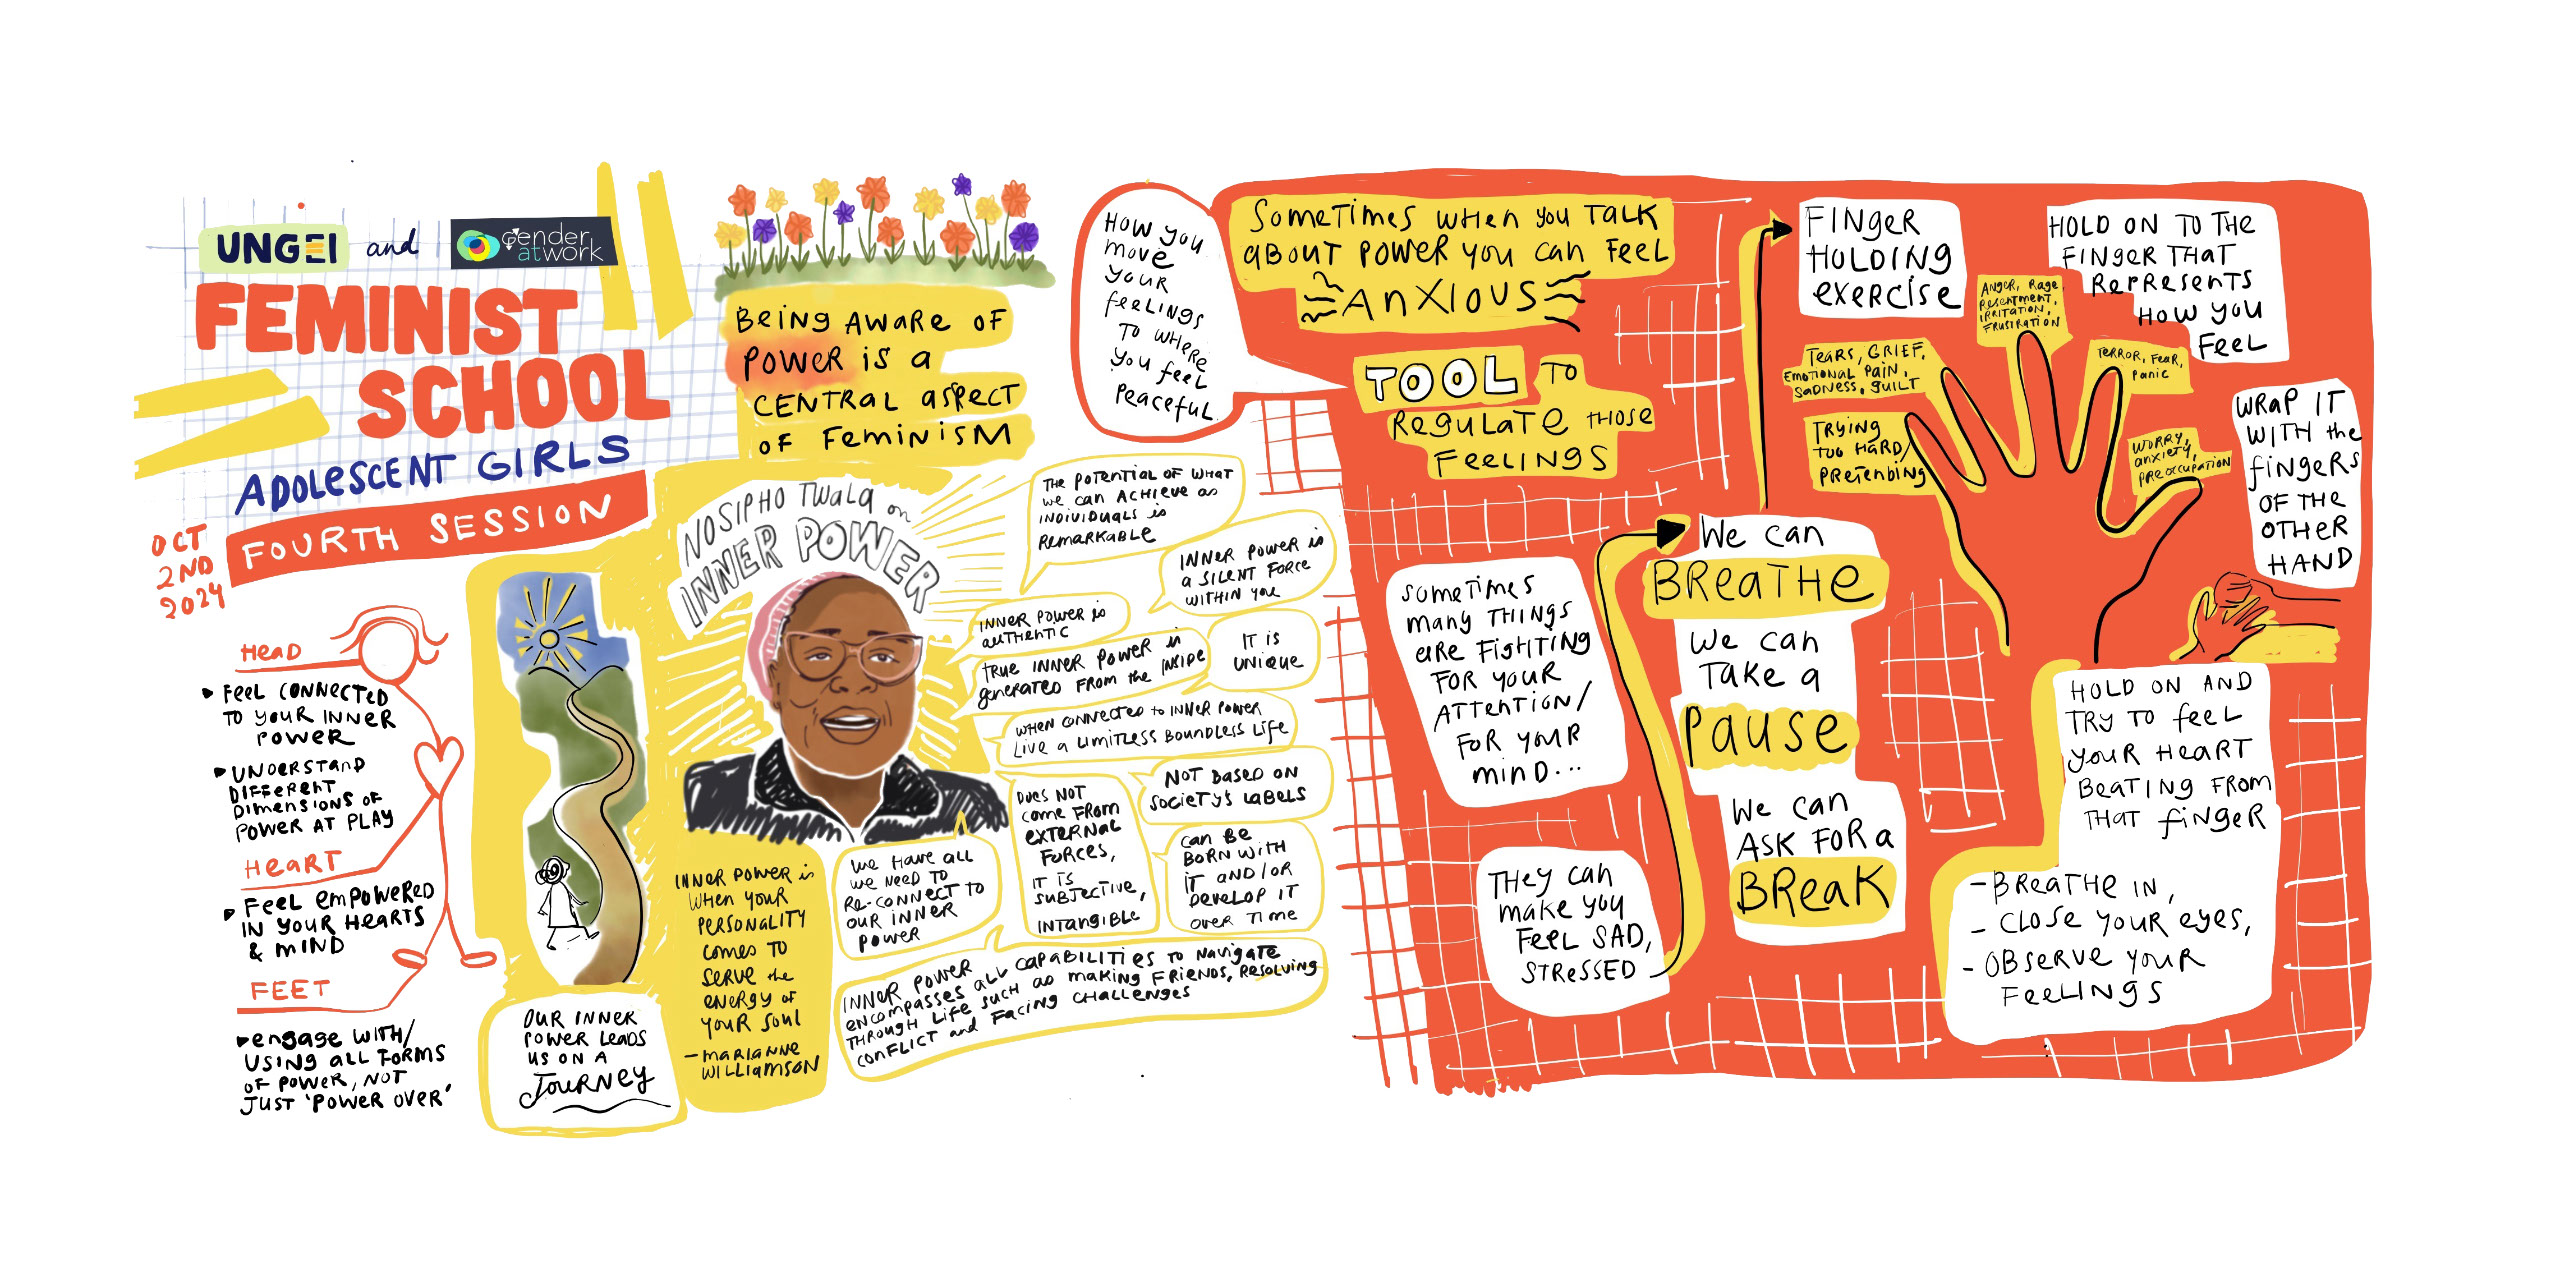 UNGEI and gender
at work
FEMINIST
SCHOOL
ADOLESCENT GIRLS
FOURTH SESSION
OCT
2ND
2024
HEAD
FEEL CONNECTED
TO YOUR INNER
POWER
UNDERSTAND
DIFFERENT
DIMENSIONS OF
POWER AT PLAY
HEART
FEEL EMPOWERED
IN YOUR HEARTS
& MIND
FEET
ENGAGE WITH/
USING ALL FORMS
OF POWER, NOT
JUST 'POWER OVER'
OUR INNER
POWER LEADS
US ON A
JOURNEY
BEING AWARE OF
POWER IS A
CENTRAL ASPECT
OF FEMINISM
NOSIPHO TWALA on
INNER POWER
INNER POWER is
WHEN YOUR
PERSONALITY
COMES TO
SERVE the
ENERGY OF
YOUR SOUL
- MARIANNE
WILLIAMSON
THE POTENTIAL OF WHAT
WE CAN ACHIEVE as
INDIVIDUALS is
REMARKABLE
INNER POWER is
a SILENT FORCE
WITHIN YOU
INNER POWER is
AUTHENTIC
TRUE INNER POWER is
generated FROM the INSIDE
IT IS
UNIQUE
WHEN CONNECTED to INNER POWER
LIVE a LIMITLESS BOUNDLESS LIFE
NOT BASED ON
SOCIETY'S LABELS
DOES NOT
COME FROM
EXTERNAL
FORCES,
IT IS
SUBJECTIVE,
INTANGIBLE
CAN BE
BORN WITH
IT AND/OR
DEVELOP IT
OVER TIME
WE HAVE ALL
WE NEED TO
RE-CONNECT TO
OUR INNER
POWER
INNER POWER
ENCOMPASSES ALL CAPABILITIES TO NAVIGATE
THROUGH LIFE SUCH as MAKING FRIENDS, RESOLVING
CONFLICT and FACING CHALLENGES
HOW YOU
MOVE
YOUR
FEELINGS
TO WHERE
YOU FEEL
PEACEFUL
SOMETIMES WHEN YOU TALK
ABOUT POWER YOU CAN FEEL
ANXIOUS
TOOL TO
REGULATE THOSE
FEELINGS
SOMETIMES
MANY THINGS
ARE FIGHTING
FOR YOUR
ATTENTION/
FOR YOUR
MIND...
THEY CAN
MAKE YOU
FEEL SAD,
STRESSED
WE CAN
BREATHE
WE CAN
TAKE A
PAUSE
WE CAN
ASK FOR A
BREAK
FINGER
HOLDING
EXERCISE
HOLD ON TO THE
FINGER THAT
REPRESENTS
HOW YOU
FEEL
ANGER, RAGE,
RESENTMENT,
IRRITATION,
FRUSTRATION
TEARS, GRIEF,
EMOTIONAL PAIN,
SADNESS, GUILT
TERROR, FEAR,
PANIC
TRYING
TOO HARD/
PRETENDING
WORRY,
ANXIETY,
PREOCCUPATION
WRAP IT
WITH the
FINGERS
OF THE
OTHER
HAND
HOLD ON AND
TRY TO FEEL
YOUR HEART
BEATING FROM
THAT FINGER
- BREATHE IN,
- CLOSE YOUR EYES,
- OBSERVE YOUR
FEELINGS